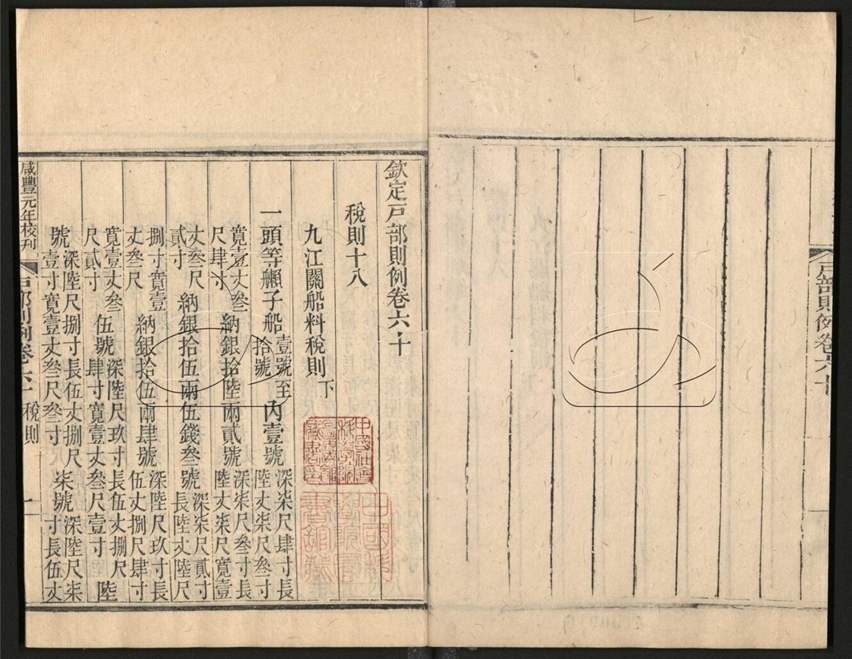 戶部則例卷六十
欽定戶部則例卷六十
稅則十八
九江關船料稅則下
一頭等子船壹號至拾號內壹號深柒尺肆寸長陸丈柒尺叁寸
寬壹丈叁尺肆寸納銀拾陸兩貳號深柒尺叁寸長陸丈柒尺寬壹
丈叁尺貳寸納銀拾伍兩伍錢叁號深柒尺貳寸長陸丈陸尺
捌寸寬壹丈叁尺納銀拾伍兩肆號深陸尺玖寸長伍丈捌尺肆寸
寬壹丈叁尺貳寸伍號深陸尺玖寸長伍丈捌尺肆寸寬壹丈叁尺壹寸陸
號深陸尺捌寸長伍丈捌尺壹寸寬壹丈叁尺叁寸柒號深陸尺柒寸長伍丈
咸豐元年校刊 戶部則例卷六十 稅則 一